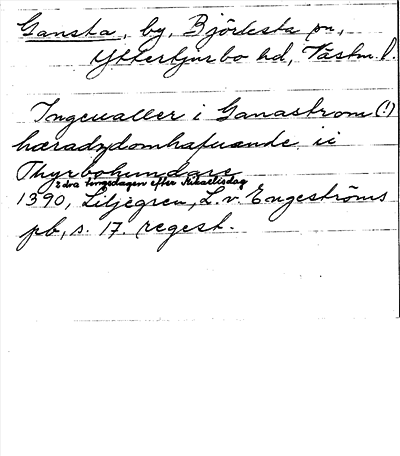 Gansta, by, Björksta sn,
Yttertjurbo hd, Västm. l.
Ingeualler i Ganastrom (!)
hæradzdomhafuande ii
Thyrbohundare
2 dra tingsdagen efter Mikaelisdag
1390, Liljegren, L. v. Engeströms
pb, s. 17. regest.